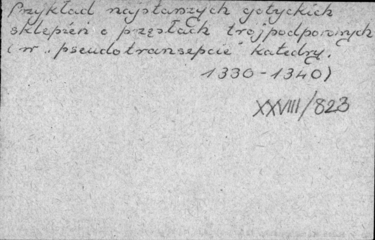 Przykład najstarszych gotyckich
sklepień o przęsłach trójpodporowych
(w "pseudotransepcie" katedry.
1330-1340)
XXVIII/823